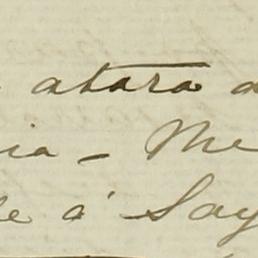 atara a
ia - Me
e á Say